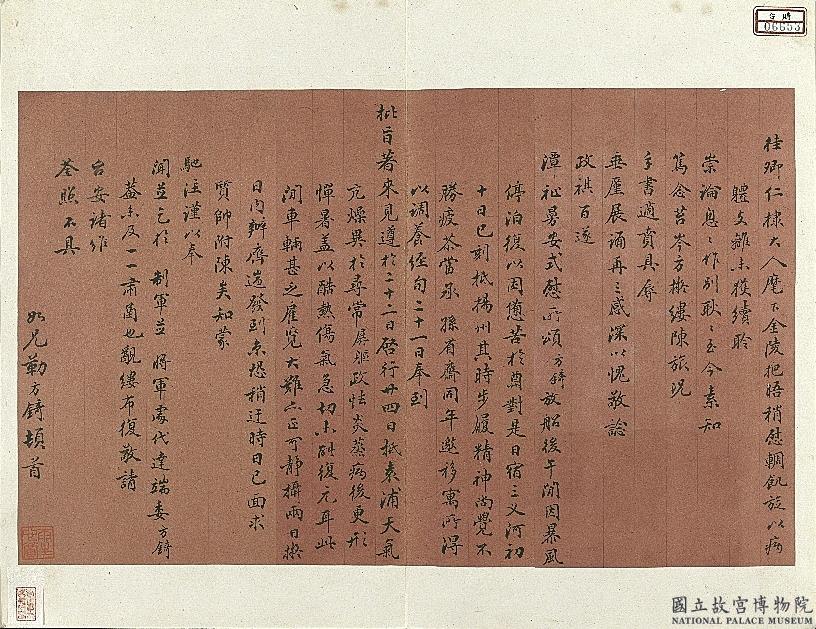 桂卿仁棣大人麾下金陵把晤稍慰輖飢旋以病
體支離未獲續聆
崇論息息作別耿耿至今素知
篤念苔岑方擬縷陳旅況
手書適賁具辱
垂厪展誦再三感深以愧敬諗
政祺百遂
潭祉勇安式慰所頌方錡放船後午間因暴風
停泊復以困憊苦於酉對是日宿三义河初
十日巳刻抵揚州其時步履精神尚覺不
勝疲茶當承 孫省齋同年邀移寓所得
以調養經旬二十一日奉到
批旨著來見遵於二十二日啓行廿四日抵袁浦天氣
亢燥異於尋常孱軀政怯炎蒸病後更形
憚暑蓋以酷熱傷氣急切未能復元耳此
間車輛甚乏雇覓大難亦正可靜攝兩日擬
日內辦齊遄發到京恐稍迂時日已面求
質帥附陳矣知蒙
馳注謹以奉
聞並乞於 制軍並 將軍處代達端委方錡
蓋未及一一肅函也覼縷布復敬請
台安諸維
荃照不具
如兄勒方錡頓首
國立故宮博物院
NATIONAL PALACE MUSEUM
06653